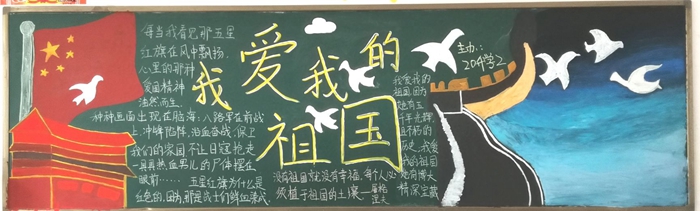 我爱我的
祖国
每当我看见那五星
红旗在风中飘扬
心里的那种
爱国精神
油然而生
种种画面出现在脑海:八路军在前战
上,冲锋陷阵,浴血奋战,保卫
我们的家园不让日寇抢走
一具具热血男儿的尸体摆在
眼前……五星红旗为什么是
红色的,因为那是战士们鲜血染成
没有祖国就没有幸福,每个人必
须植于祖国的土壤
主办:
我爱我的
祖国因为
她有五
千年光辉
且不朽的
历史,我爱
我的祖国
她有博大
精深宝藏